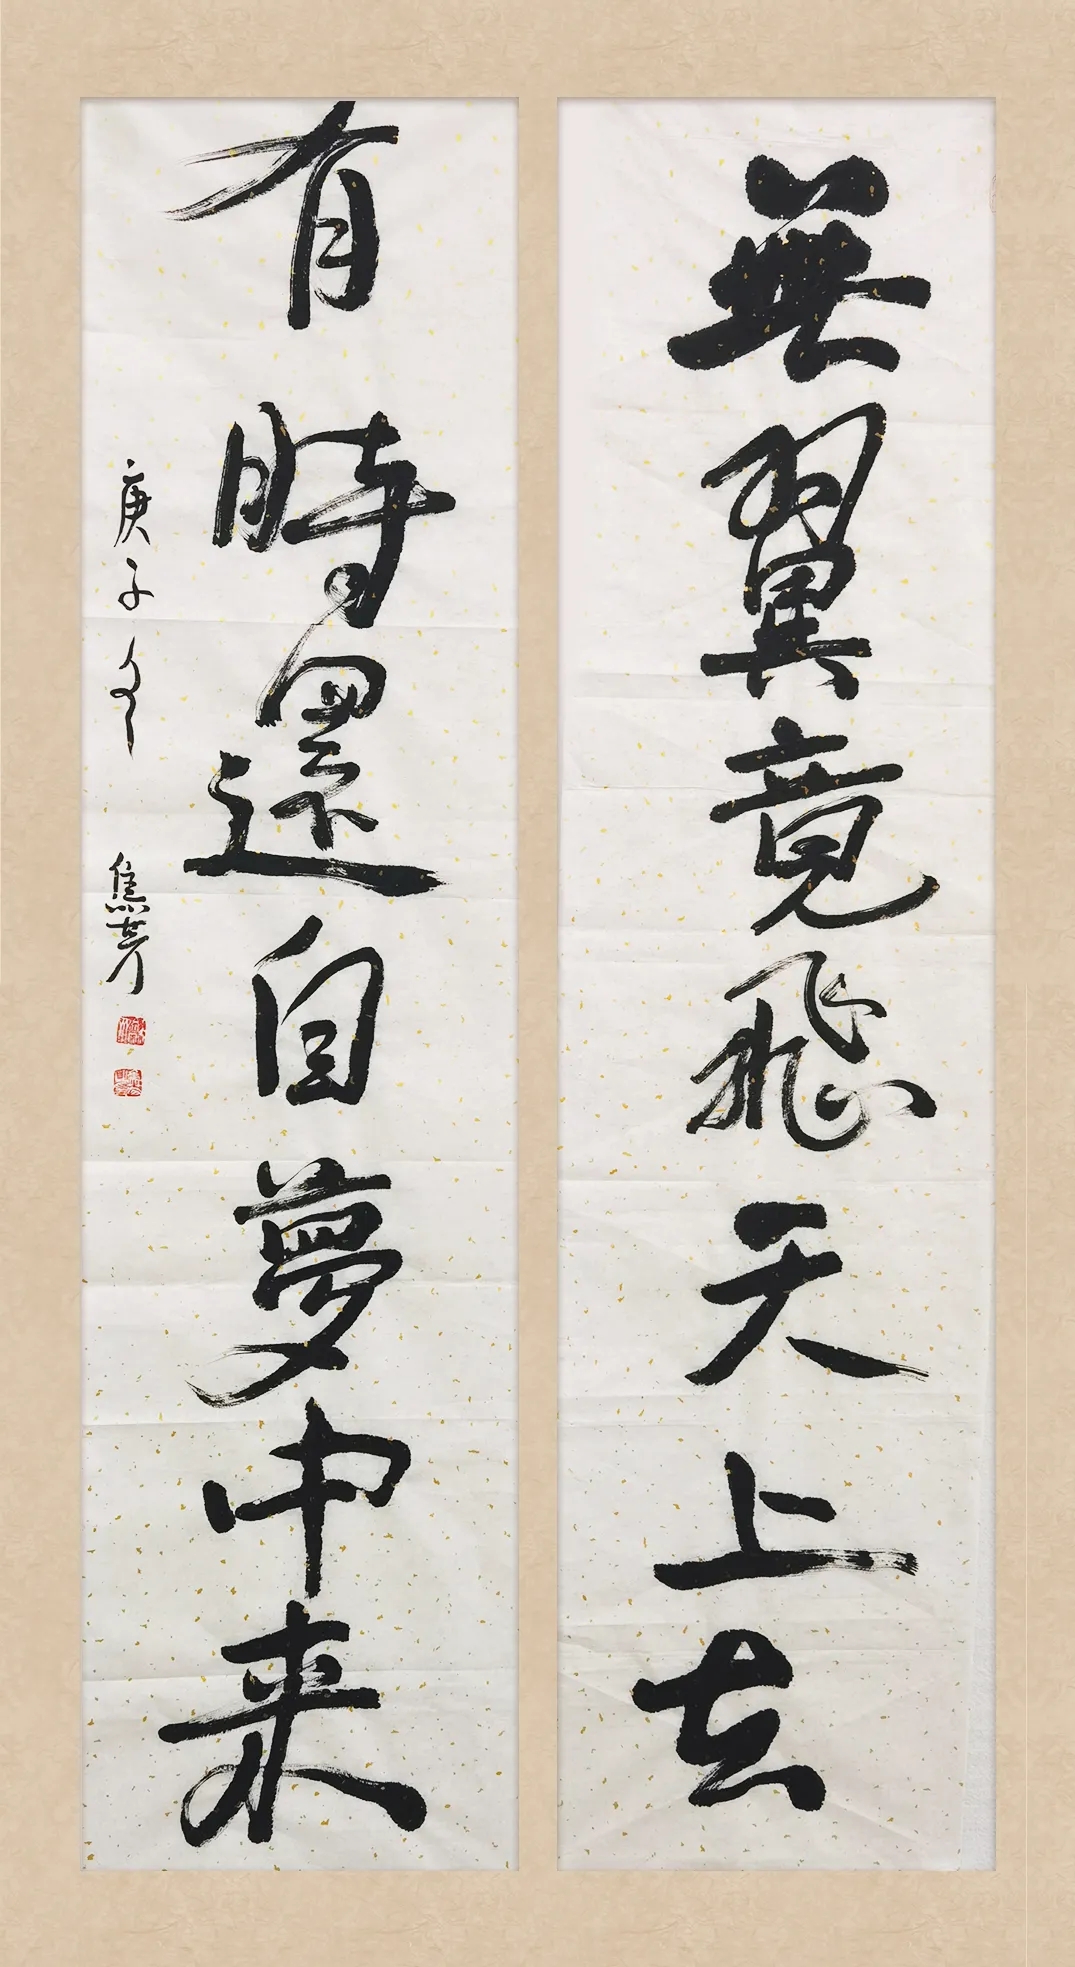 無翼竟飛天上去
有時還自夢中来
庚子冬
焦芳